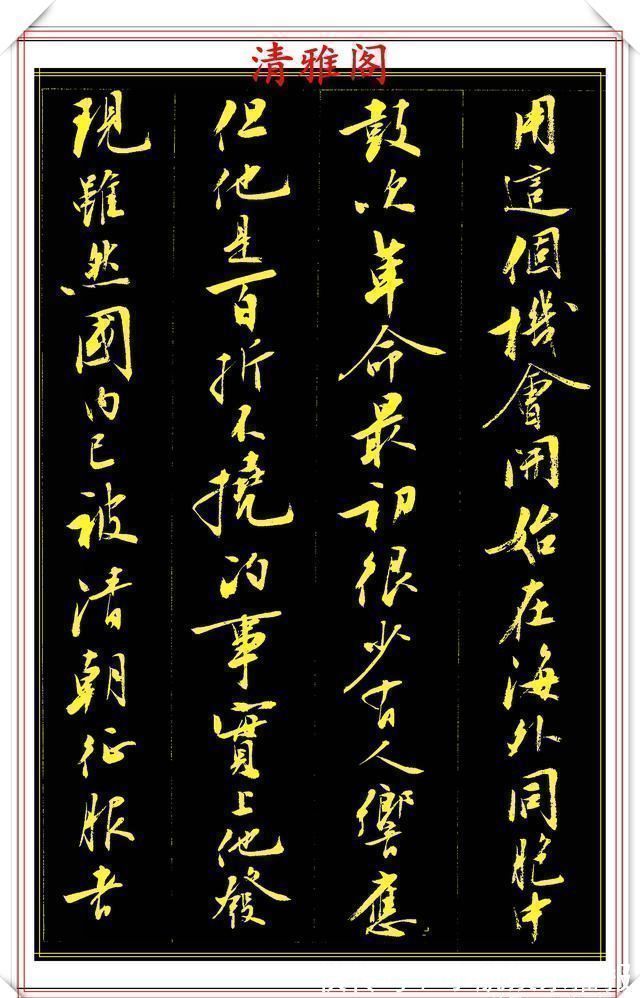 清雅阁
用這個機會開始在海外同胞中
鼓次革命最初很少有人響應
但他是百折不撓的事實上他發
現雖然國内已被清朝征服者